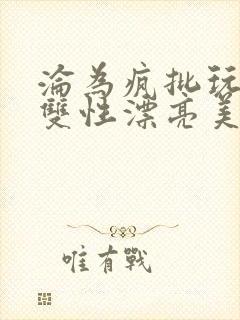 淪為瘋批玩
雙性漂亮美
唯有戰